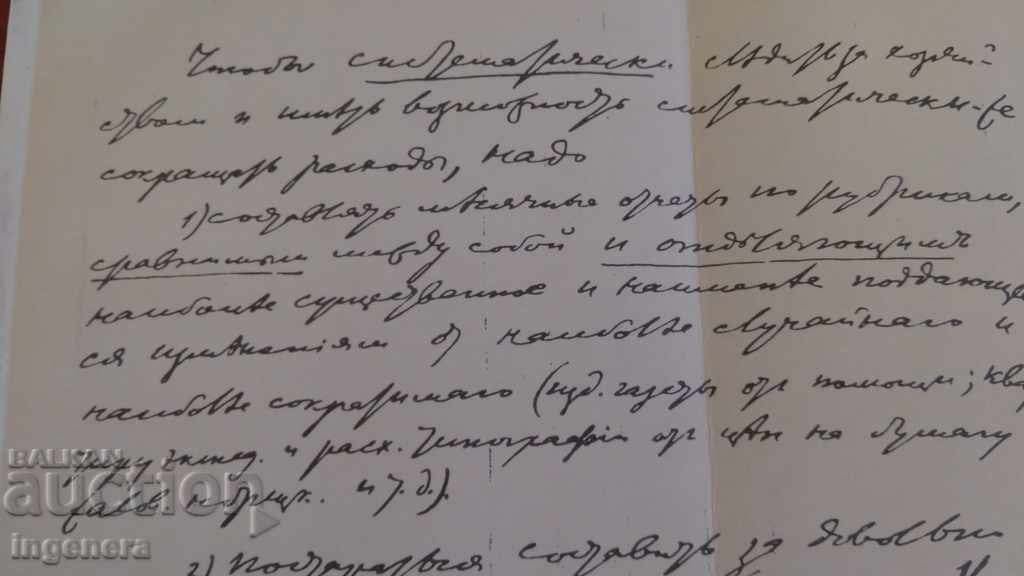 Чтобы систематически слѣдить за хозяй-
ством и имѣть возможность систематически-же
сокращать расходы, надо
1) составлять мѣсячные отчеты по рубрикам,
сравнимым между собой и отдѣляющимъ
наиболѣе существенное и наименѣе поддающее
ся измѣненіям от наиболѣе случайнаго и
наиболѣе сократимаго (изд. газеты от помощи; ква
и расх. типографіи от цѣн на бумагу
и т. д.).
2) Постараться составить за довольно
BALKAN
auction
ingenera